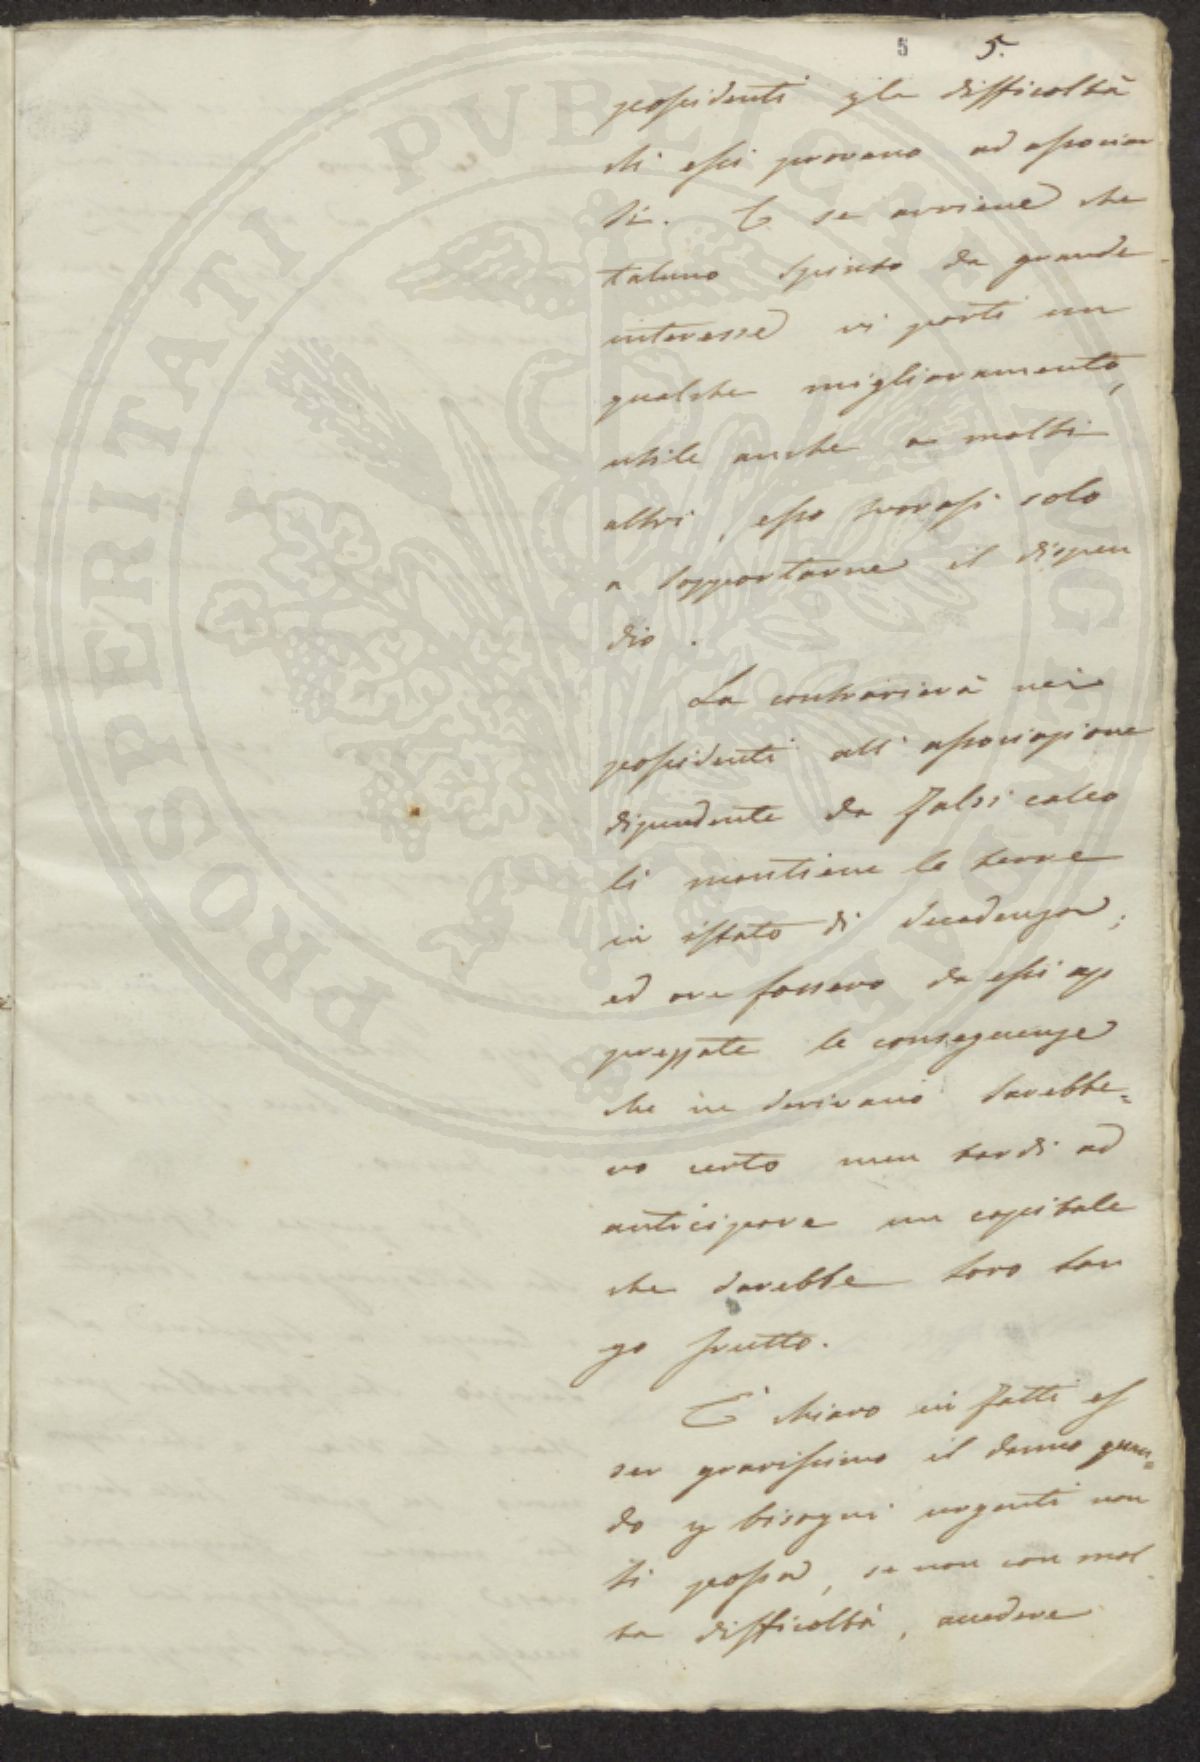 5 5.
possidenti p la difficoltà
chi essi provano ad associar
si. E se avviene che
taluno spinto da grande
interesse vi porti un
qualche miglioramento,
utile anche a molti
altri, esso trovasi solo
a sopportarne il dispen
dio.
La contrarietà nei
possidenti all'associazione
dipendente da falsi calco
li mantiene le terre
in istato di decadenza;
ed ove fossero da essi ap
prezzate le conseguenze
che ne derivano sarebbe=
ro certo men tardi ad
anticipare un capitale
che darebbe loro lar
go frutto.
È chiaro in fatti es
ser gravissimo il danno quan=
do p bisogni urgenti non
si possa, se non con mol
ta difficoltà, accedere
PROSPERITATI PVBLICAE AVGENDAE